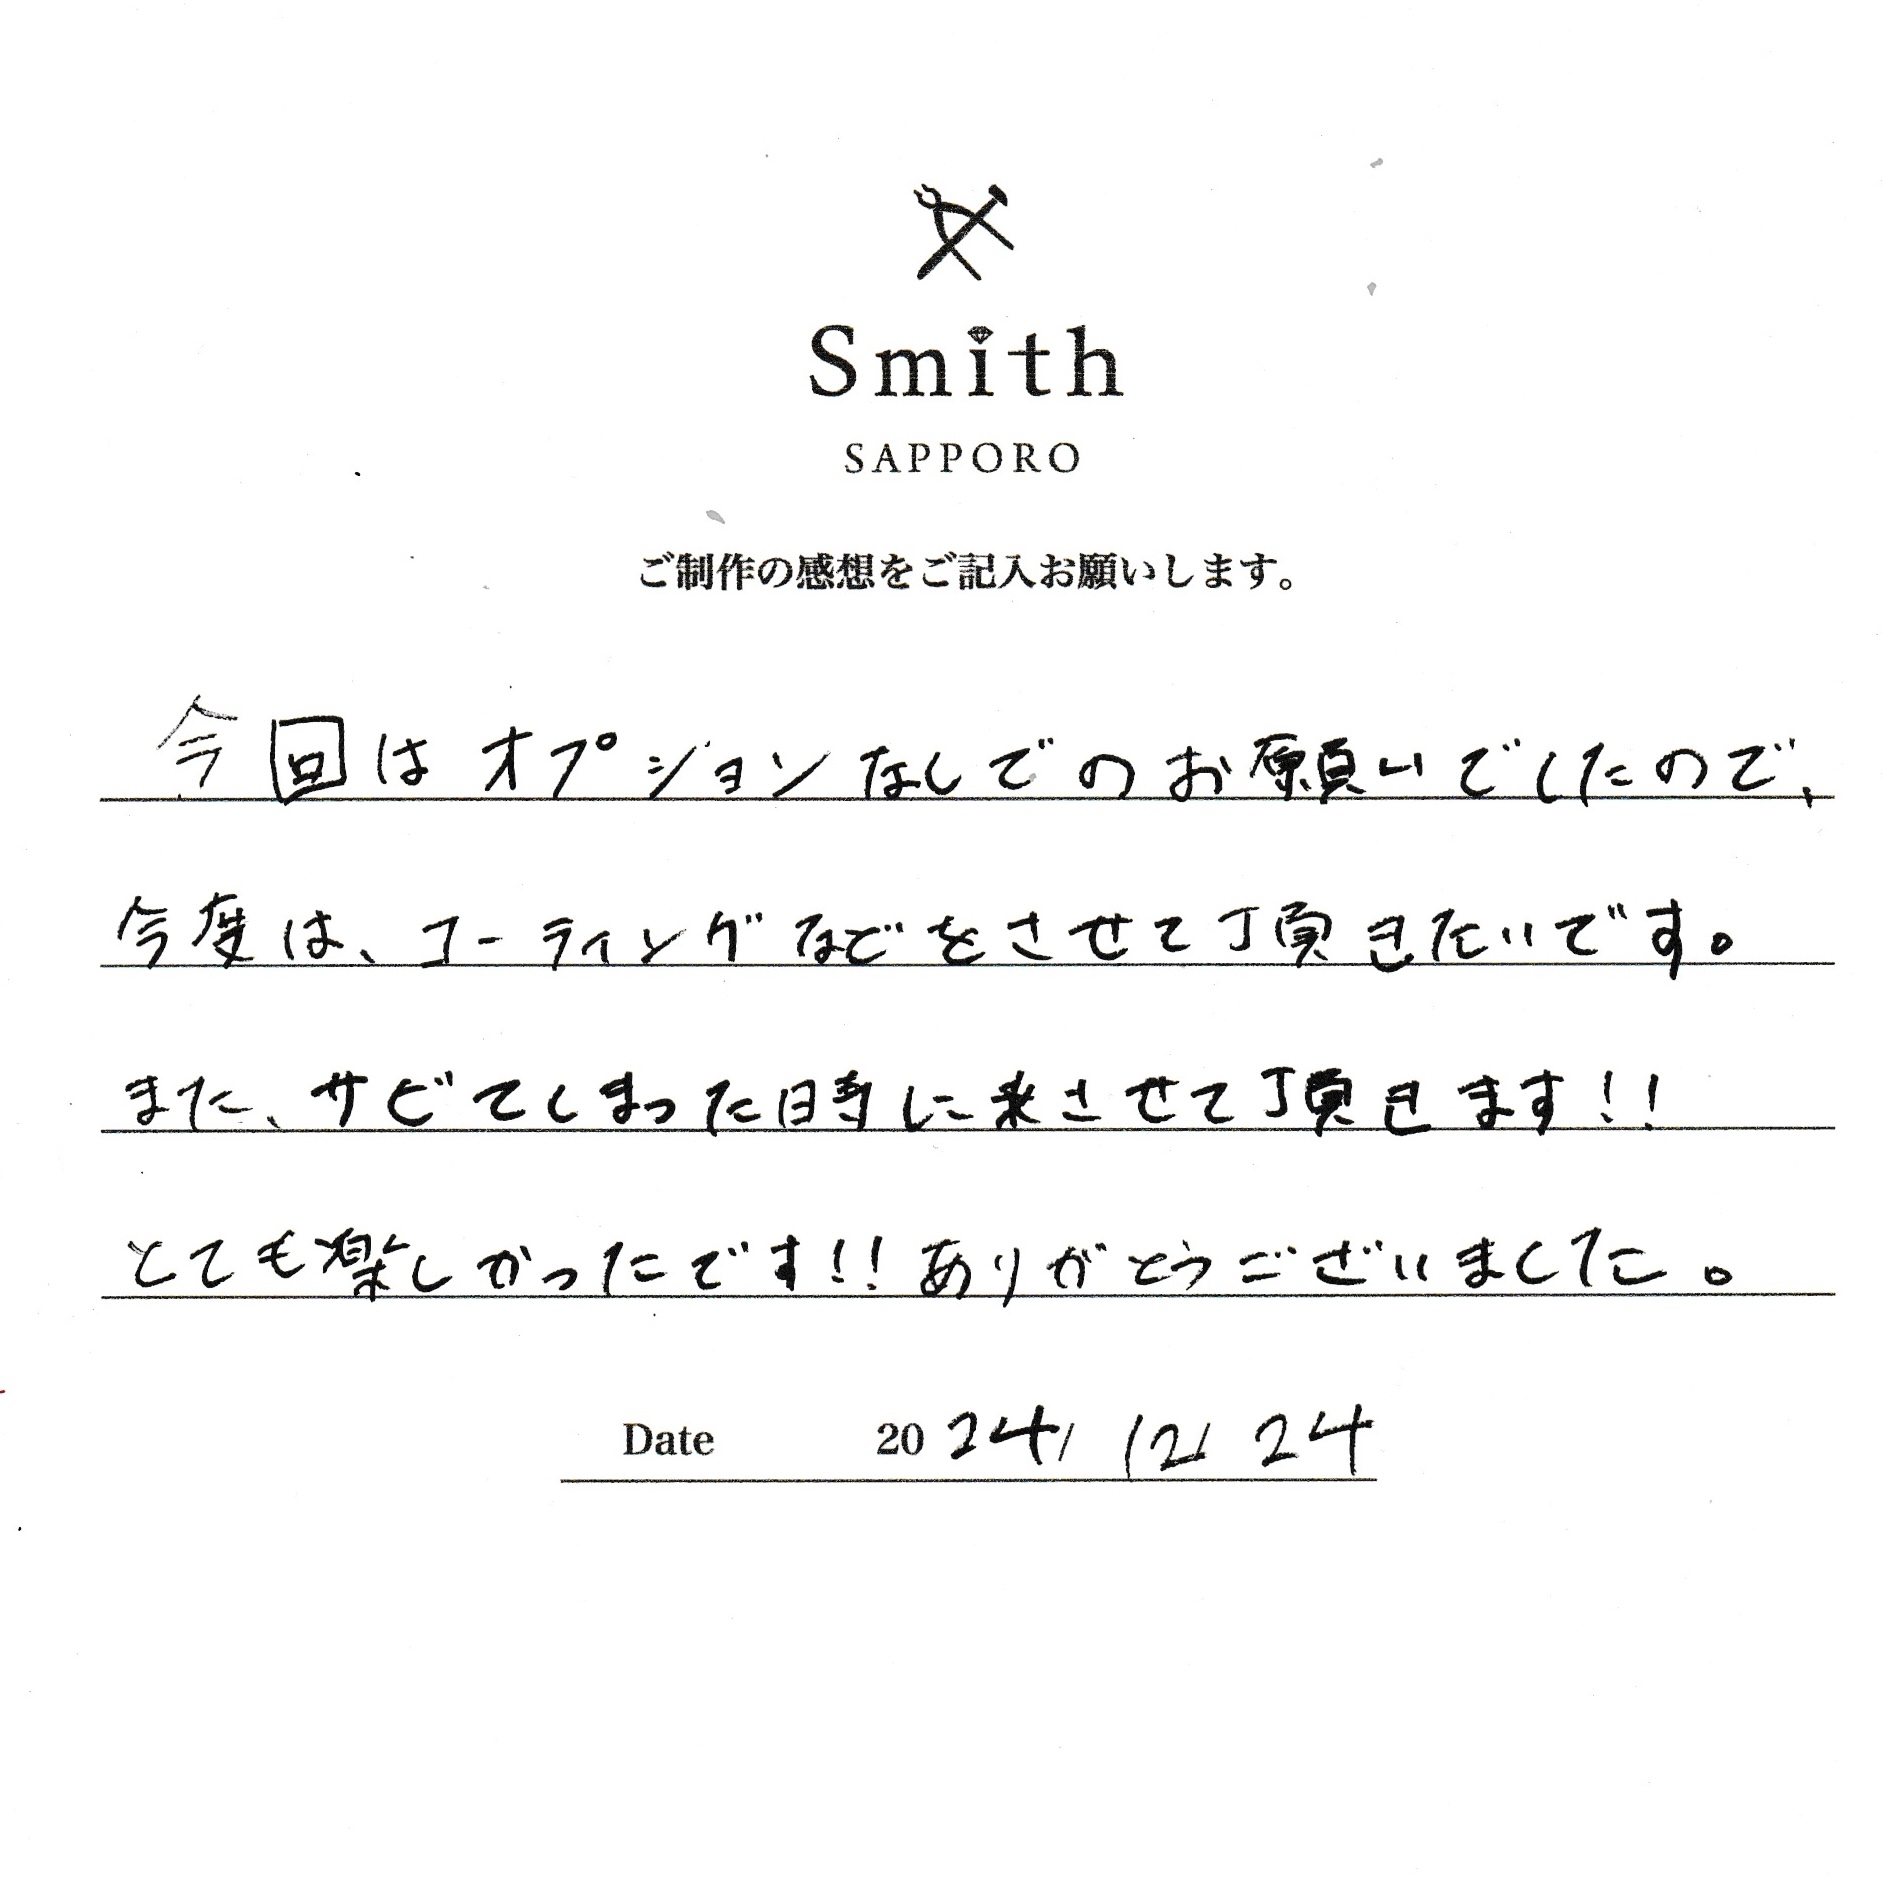 Smith
SAPPORO
ご制作の感想をご記入お願いします。
今回はオプションなしでのお願いでしたので、
今度は、コーティングなどをさせて頂きたいです。
また、サビてしまった時に来させて頂きます!!
とても楽しかったです!!ありがとうございました。
Date 2024/12/24